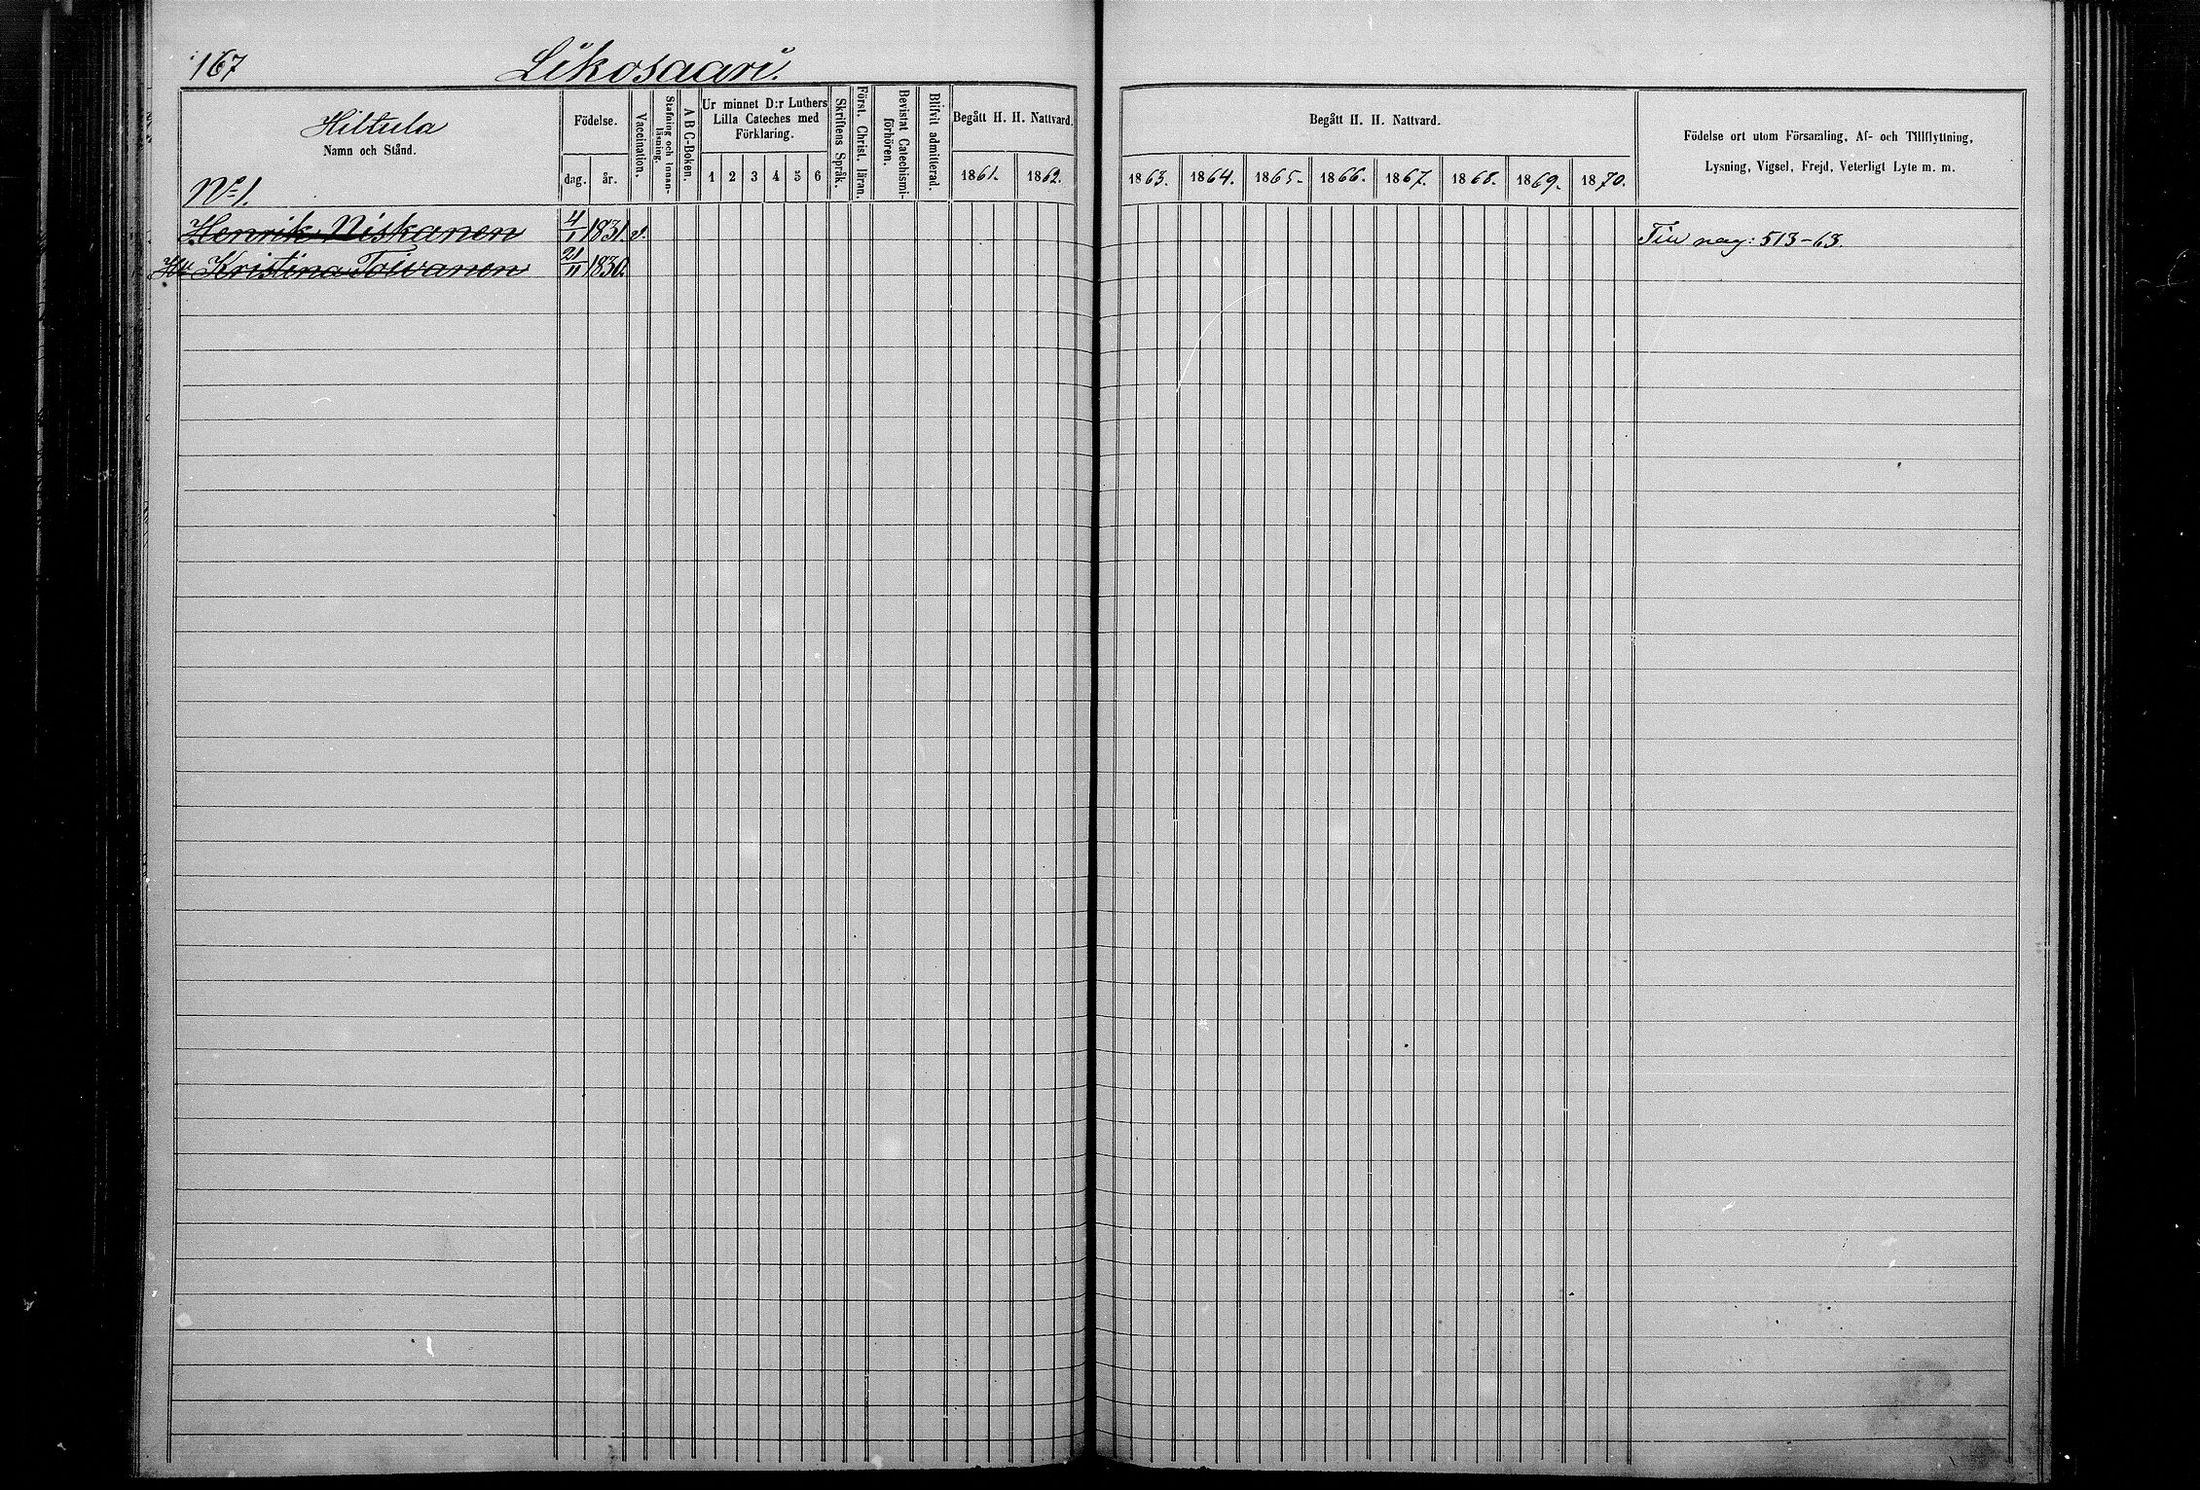 167 Likosaari.
Hiltula
Namn och Stånd.
No 1.
Födelse.
dag. år.
Vaccination.
Stafning och Innan-
läsning.
A B C-Boken.
Ur minnet D:r Luthers
Lilla Cateches med
Förklaring.
1 2 3 4 5 6
Skriftens Språk.
Först. Christ. läran.
Bevistat Catechismi-
förhören.
Blifvit admitterad.
Begått H. H. Nattvard.
1861. 1862.
Begått H. H. Nattvard.
1863. 1864. 1865. 1866. 1867. 1868. 1869. 1870.
Födelse ort utom Församling, Af- och Tillflyttning,
Lysning, Vigsel, Frejd, Veterligt Lyte m. m.
Henrik Niskanen 4/1 1831. v. 513-63.
Hu Kristina Toivanen 21/11 1830.